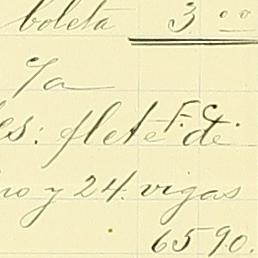 boleta 3.00
Ya
es: flete F.C. de
no y 24. vigas
6590.